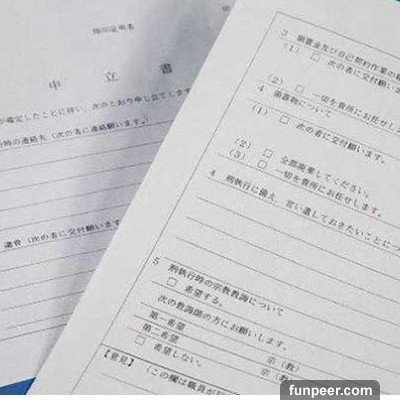 指印証明者
申立書
が確定したことに伴い、次のとおり申し立てします
時の連絡先（次の者に連絡願います。）
遺骨（次の者に交付願います
3 領置金及び自己契約作業の
（1）□ 次の者に交付願います。
（2）□ 一切を貴所にお任せします
4 領置物について
（1）□ 次の者に交付願います。
（2）□ 全部廃棄してください。
（3）□ 一切を貴所にお任せします。
4 刑執行に備え、言い遺しておきたいことにつ
5 刑執行時の宗教教誨について
□ 希望する。
次の教誨師の方にお願いします。
第一希望 宗（教）
第二希望 宗（教）
□ 希望しない。
【意見】（この欄は職員が記
funpeer.com